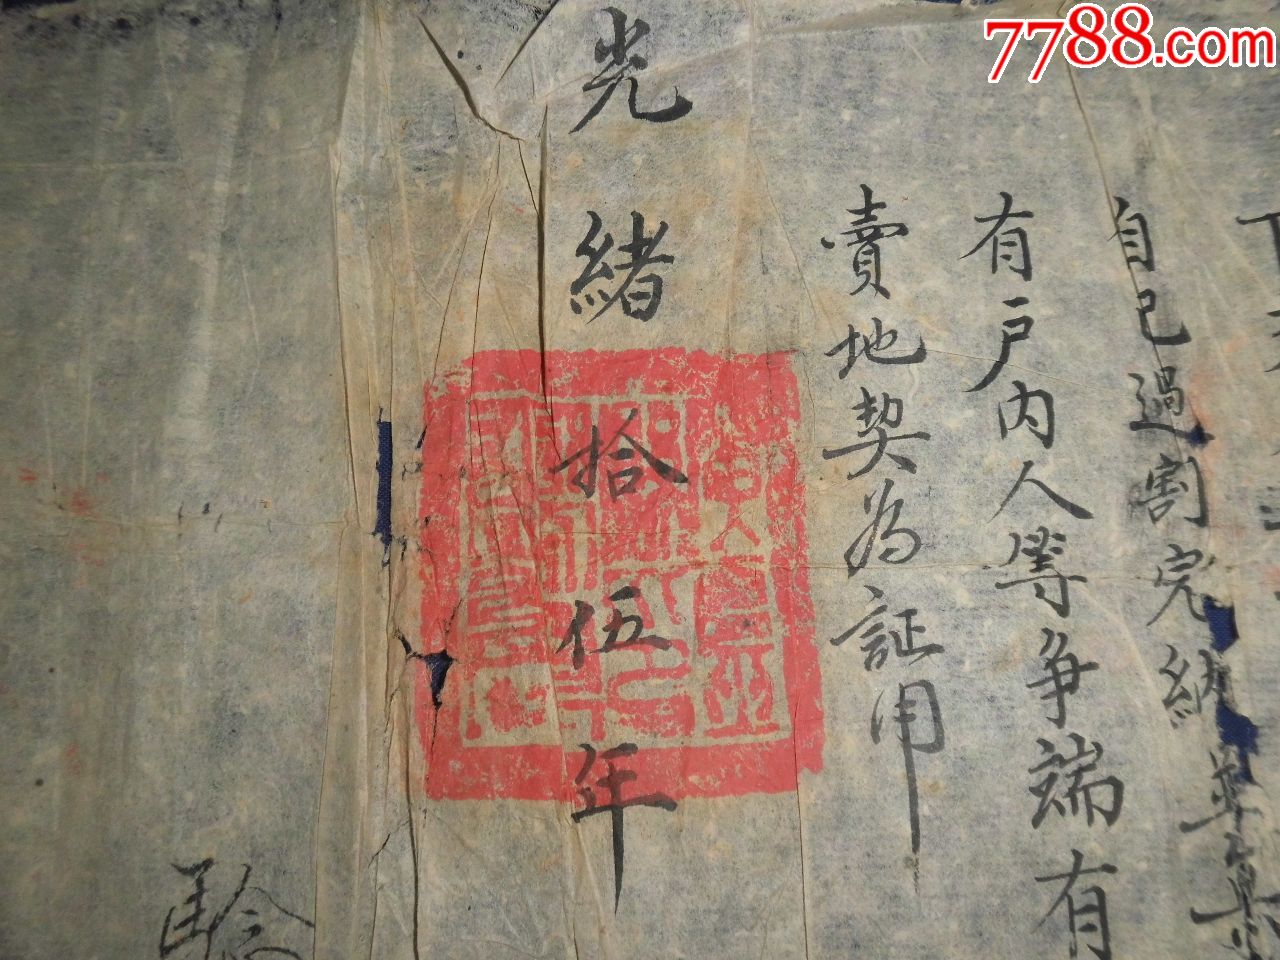 7788.com
自己過割完納並無
有戶內人等争端有
賣地契为証用
光緒拾伍年
驗